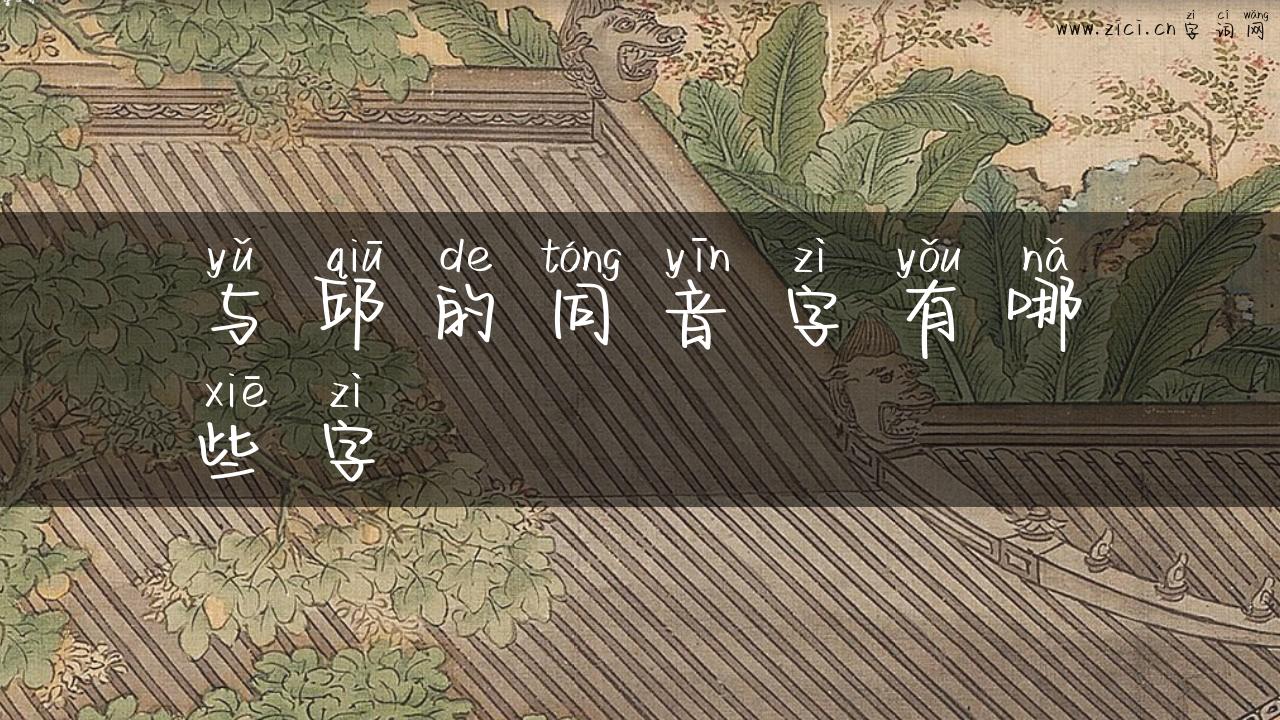 zì cí wǎng
www.zici.cn 字词网
yǔ qiū de tóng yīn zì yǒu nǎ
与邱的同音字有哪
xiē zì
些字